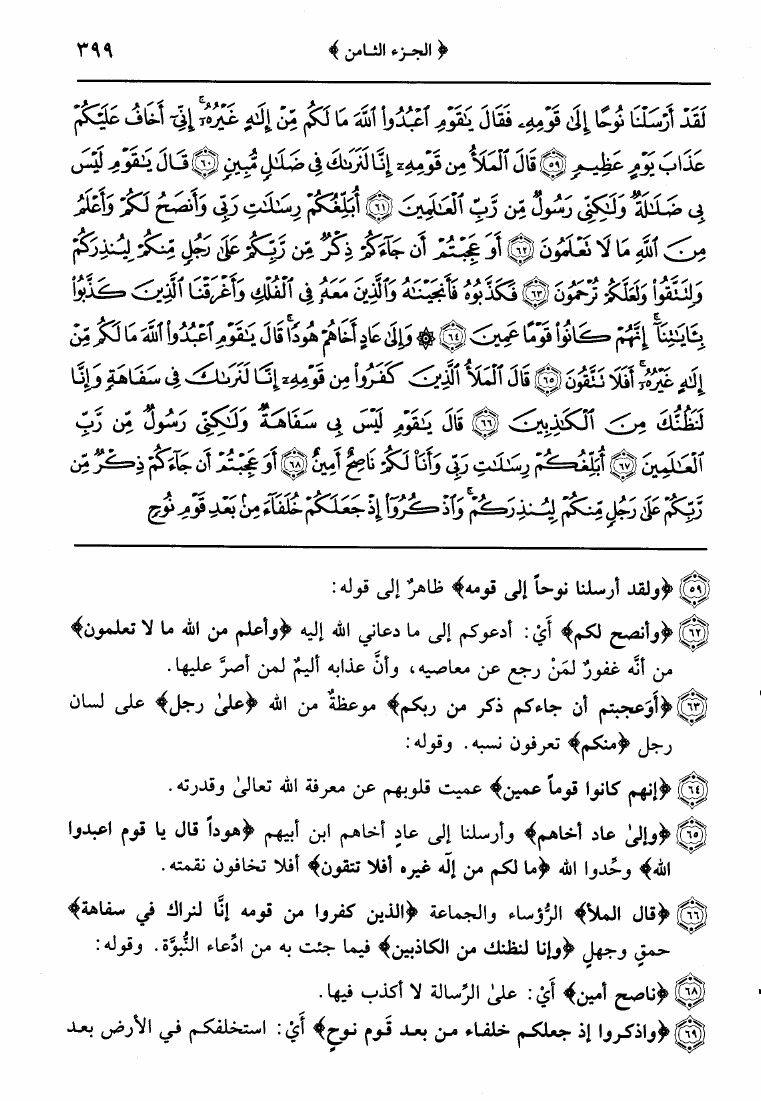 ﴿ الجزء الثامن ﴾ ٣٩٩
لَقَدْ أَرْسَلْنَا نُوحًا إِلَىٰ قَوْمِهِۦ فَقَالَ يَٰقَوْمِ ٱعْبُدُوا۟ ٱللَّهَ مَا لَكُم مِّنْ إِلَٰهٍ غَيْرُهُۥٓ إِنِّىٓ أَخَافُ عَلَيْكُمْ
عَذَابَ يَوْمٍ عَظِيمٍ ٥٩ قَالَ ٱلْمَلَأُ مِن قَوْمِهِۦٓ إِنَّا لَنَرَىٰكَ فِى ضَلَٰلٍ مُّبِينٍ ٦٠ قَالَ يَٰقَوْمِ لَيْسَ
بِى ضَلَٰلَةٌ وَلَٰكِنِّى رَسُولٌ مِّن رَّبِّ ٱلْعَٰلَمِينَ ٦١ أُبَلِّغُكُمْ رِسَٰلَٰتِ رَبِّى وَأَنصَحُ لَكُمْ وَأَعْلَمُ
مِنَ ٱللَّهِ مَا لَا تَعْلَمُونَ ٦٢ أَوَعَجِبْتُمْ أَن جَآءَكُمْ ذِكْرٌ مِّن رَّبِّكُمْ عَلَىٰ رَجُلٍ مِّنكُمْ لِيُنذِرَكُمْ
وَلِتَتَّقُوا۟ وَلَعَلَّكُمْ تُرْحَمُونَ ٦٣ فَكَذَّبُوهُ فَأَنجَيْنَٰهُ وَٱلَّذِينَ مَعَهُۥ فِى ٱلْفُلْكِ وَأَغْرَقْنَا ٱلَّذِينَ كَذَّبُوا۟
بِـَٔايَٰتِنَآ إِنَّهُمْ كَانُوا۟ قَوْمًا عَمِينَ ٦٤ ۞ وَإِلَىٰ عَادٍ أَخَاهُمْ هُودًا قَالَ يَٰقَوْمِ ٱعْبُدُوا۟ ٱللَّهَ مَا لَكُم مِّنْ
إِلَٰهٍ غَيْرُهُۥٓ أَفَلَا تَتَّقُونَ ٦٥ قَالَ ٱلْمَلَأُ ٱلَّذِينَ كَفَرُوا۟ مِن قَوْمِهِۦٓ إِنَّا لَنَرَىٰكَ فِى سَفَاهَةٍ وَإِنَّا
لَنَظُنُّكَ مِنَ ٱلْكَٰذِبِينَ ٦٦ قَالَ يَٰقَوْمِ لَيْسَ بِى سَفَاهَةٌ وَلَٰكِنِّى رَسُولٌ مِّن رَّبِّ
ٱلْعَٰلَمِينَ ٦٧ أُبَلِّغُكُمْ رِسَٰلَٰتِ رَبِّى وَأَنَا۠ لَكُمْ نَاصِحٌ أَمِينٌ ٦٨ أَوَعَجِبْتُمْ أَن جَآءَكُمْ ذِكْرٌ مِّن
رَّبِّكُمْ عَلَىٰ رَجُلٍ مِّنكُمْ لِيُنذِرَكُمْ وَٱذْكُرُوٓا۟ إِذْ جَعَلَكُمْ خُلَفَآءَ مِنۢ بَعْدِ قَوْمِ نُوحٍ
٥٩ ﴿ولقد أرسلنا نوحاً إلى قومه﴾ ظاهرٌ إلى قوله:
٦٢ ﴿وأنصح لكم﴾ أَيْ: أدعوكم إلى ما دعاني الله إليه ﴿وأعلم من الله ما لا تعلمون﴾
من أنَّه غفورٌ لمَنْ رجع عن معاصيه، وأنَّ عذابه أليمٌ لمن أصرَّ عليها.
٦٣ ﴿أَوَعجبتم أن جاءكم ذكر من ربكم﴾ موعظةٌ من الله ﴿علىٰ رجل﴾ على لسان
رجل ﴿منكم﴾ تعرفون نسبه. وقوله:
٦٤ ﴿إنهم كانوا قوماً عمين﴾ عميت قلوبهم عن معرفة الله تعالىٰ وقدرته.
٦٥ ﴿وإلىٰ عاد أخاهم﴾ وأرسلنا إلى عادٍ أخاهم ابن أبيهم ﴿هوداً قال يا قوم اعبدوا
الله﴾ وحِّدوا الله ﴿ما لكم من إلٰه غيره أفلا تتقون﴾ أفلا تخافون نقمته.
٦٦ ﴿قال الملأ﴾ الرُّؤساء والجماعة ﴿الذين كفروا من قومه إنَّا لنراك في سفاهة﴾
حمقٍ وجهلٍ ﴿وإنا لنظنك من الكاذبين﴾ فيما جئت به من ادِّعاء النُّبوَّة. وقوله:
٦٨ ﴿ناصح أمين﴾ أَيْ: علىٰ الرِّسالة لا أكذب فيها.
٦٩ ﴿واذكروا إذ جعلكم خلفاء من بعد قوم نوحٍ﴾ أَيْ: استخلفكم في الأرض بعد